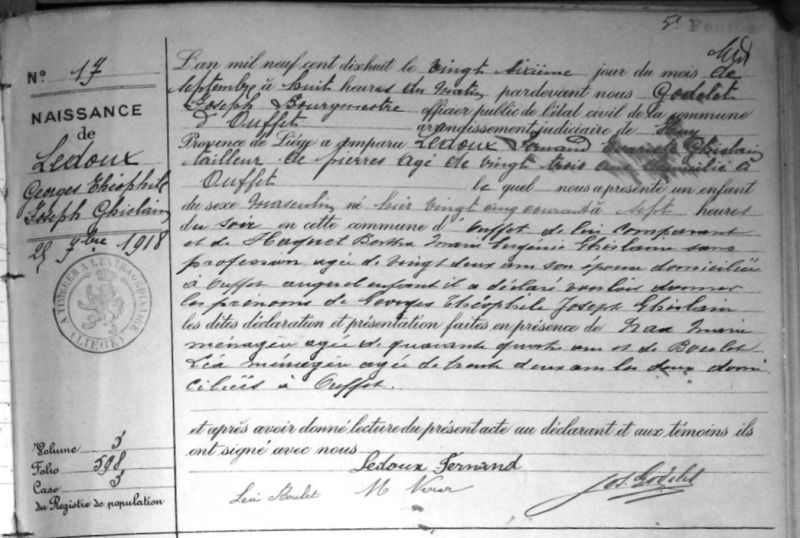 N° 17
NAISSANCE
de
Ledoux
Georges Théophile
Joseph Ghislain
25 7bre 1918
A TIMBRER A L'EXTRAORDINAIRE
(LIÈGE)
Volume 5
Folio 598
Case 5
du Registre de population
5e
L'an mil neuf cent dixhuit le vingt sixième jour du mois de
septembre à huit heures du matin pardevant nous Godelet
Joseph Bourgmestre officier public de l'état civil de la commune
d'Ouffet arrondissement judiciaire de Huy
Province de Liége a comparu Ledoux Fernand Evariste Ghislain
tailleur de pierres agé de vingt trois ans domicilié à
Ouffet lequel nous a présenté un enfant
du sexe masculin né hier vingt cinq courant à sept heures
du soir en cette commune d'Ouffet de lui comparant
et de Haquet Bertha Marie Eugénie Ghislain sans
profession agée de vingt deux ans son épouse domiciliée
à Ouffet auquel enfant il a déclaré vouloir donner
les prénoms de Georges Théophile Joseph Ghislain
les dites déclaration et présentation faites en présence de Marie
ménagère agée de quarante quatre ans et de Boulet
Léa ménagère agée de trente deux ans les deux domi
ciliées à Ouffet.
et après avoir donné lecture du présent acte au déclarant et aux témoins ils
ont signé avec nous
Ledoux Fernand
Léa Boulet M Jos. Godelet